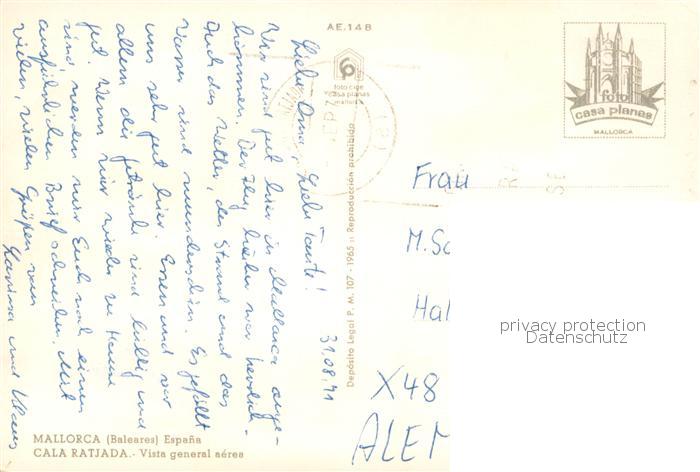 AE.148
foto cige
casa planas
mallorca
foto
casa planas
MALLORCA
31.08.71
Liebe Oma, liebe Tante!
Wir sind gut hier in Mallorca ange-
kommen. Der Flug hierher war herrlich.
Auch das Wetter, der Strand und das
Wasser sind wunderschön. Es gefällt
uns sehr gut hier. Essen und vor
allem die Getränke sind billig und
gut. Wenn wir wieder zu Hause
sind werden wir Euch noch einen
ausführlichen Brief schreiben. Mit
vielen, vielen Grüßen von
und Klaus
Depósito Legal P. M. 107 - 1965 :: Reproducción prohibida
Frau
M. Sc
Hal
X48
ALEM
privacy protection
Datenschutz
MALLORCA (Baleares) España
CALA RATJADA.- Vista general aérea